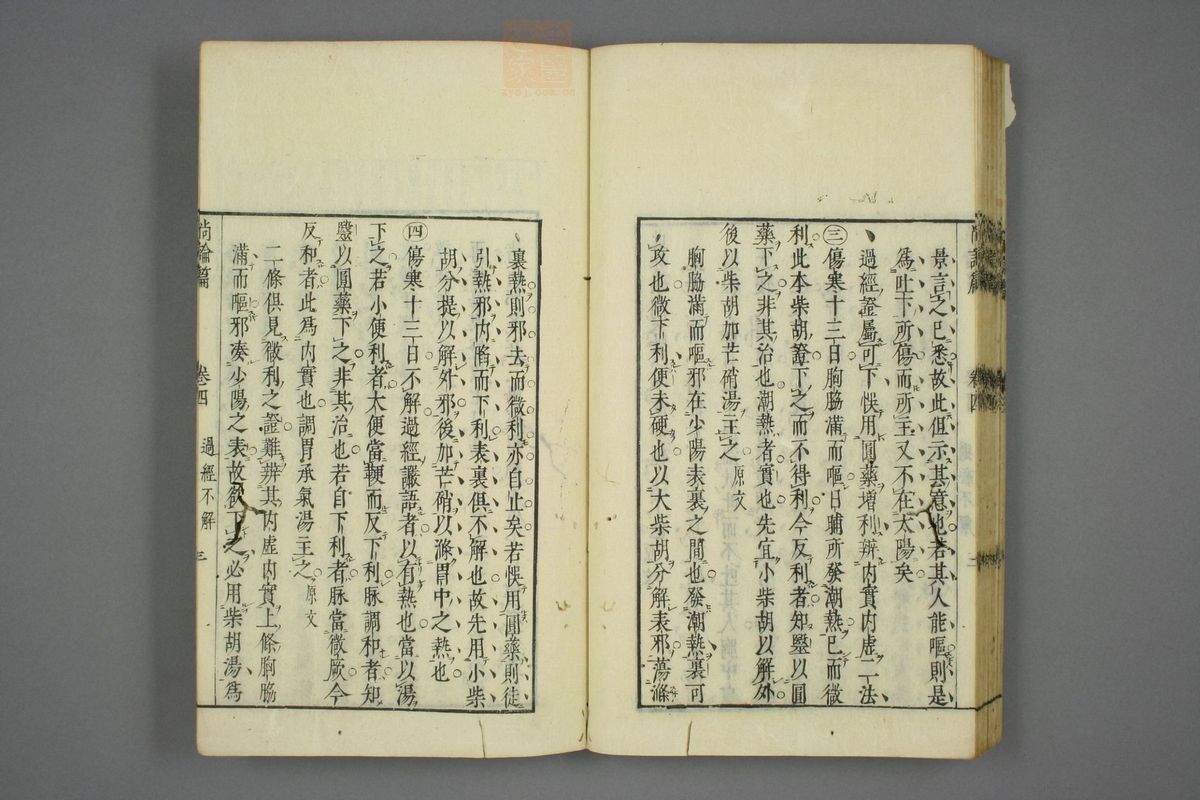 景言之已悉故此但示其意也若其人能嘔則是
爲吐下所傷而所主又不在太陽矣
過經證屬可下悞用圓藥增利辨內實內虛二法
㊂傷寒十三日胸脇滿而嘔日晡所發潮熱已而微
利此本柴胡證下之而不得利今反利者知毉以圓
藥下之非其治也潮熱者實也先宜小柴胡以解外
後以柴胡加芒硝湯主之 原文
胸脇滿而嘔邪在少陽表裏之間也發潮熱裏可
攻也微下利便未硬也以大柴胡分解表邪蕩滌
裏熱則邪去而微利亦自止矣若悞用圓藥則徒
引熱邪內陷而下利表裏俱不解也故先用小柴
胡分提以解外邪後加芒硝以滌胃中之熱也
㊃傷寒十三日不解過經讝語者以有熱也當以湯
下之若小便利者大便當鞕而反下利脉調和者知
毉以圓藥下之非其治也若自下利者脉當微厥今
反和者此爲內實也調胃承氣湯主之 原文
二條俱見微利之證難辨其內虛內實上條胸脇
滿而嘔邪湊少陽之表故欲下之必用柴胡湯爲
尚論篇 卷四 過經不解 三